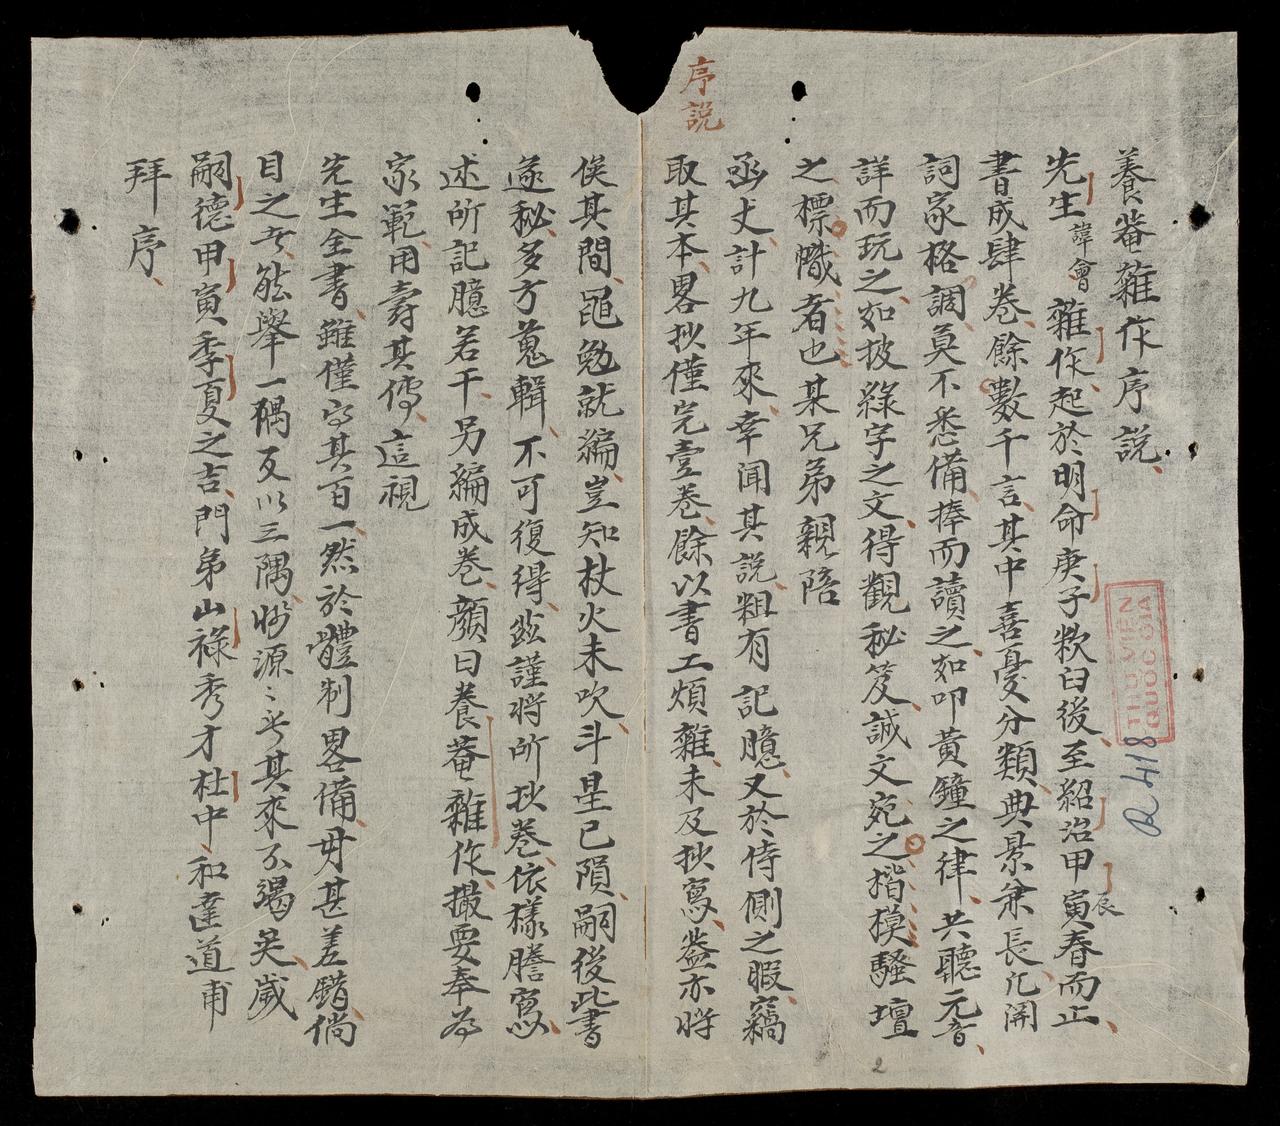 序說
養菴雜作序說
先生諱會雜作起於明命庚子敕臼後至紹治甲寅辰春而止
書成肆卷餘數千言其中喜憂分類典景兼長凡開
詞家格調莫不悉備捧而讀之如叩黃鐘之律共聽元音
詳而玩之如披綠字之文得觀秘笈誠文宛之楷模騷壇
之標幟者也某兄弟親陪
函丈計九年來幸聞其說粗有記臆又於侍側之暇竊
取其本畧抄僅完壹卷餘以書工煩雜未及抄寫蓋亦將
俟其間黽勉就編豈知杖火未吹斗星已隕嗣後此書
遂秘多方蒐輯不可復得茲謹將所抄卷依樣謄寫
述所記臆若干另編成卷顏曰養菴雜作撮要奉為
家範用壽其傳這視
先生全書雖僅字其百一然於體制畧備毋甚差錯倘
目之者能舉一隅反以三隅妙源〻乎其來不竭矣歲
嗣德甲寅季夏之吉門弟山祿秀才杜中和達道甫
拜序
THƯ VIỆN
QUỐC GIA
R 418
2